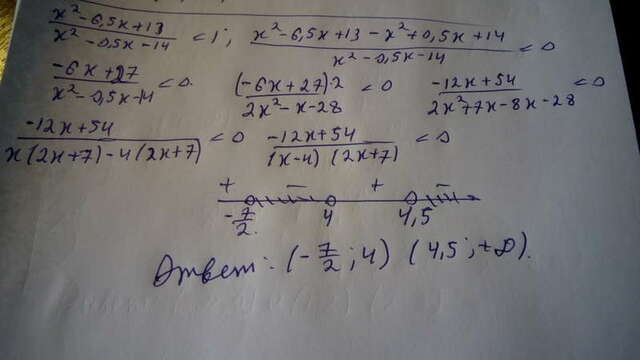 (x²-6,5x+13)/(x²-0,5x-14) <1; (x²-6,5x+13-x²+0,5x+14)/(x²-0,5x-14) <0
(-6x+27)/(x²-0,5x-14) <0. ((-6x+27)·2)/(2x²-x-28) <0 (-12x+54)/(2x²+7x-8x-28) <0
(-12x+54)/(x(2x+7)-4(2x+7)) <0 (-12x+54)/((x-4)(2x+7)) <0
+ - + -
-7/2. 4 4,5
Ответ: (-7/2; 4) (4,5; +∞).